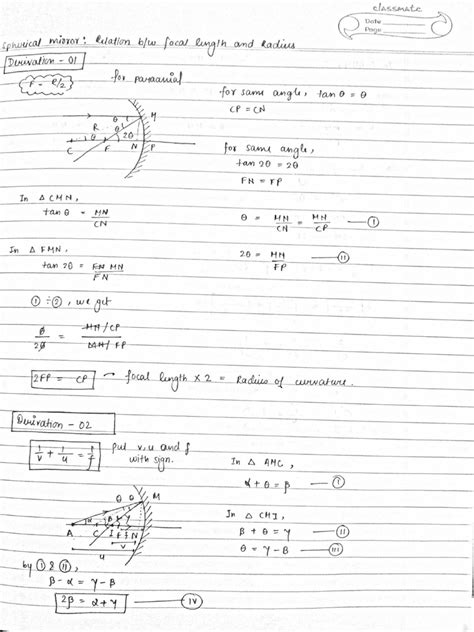 classmate
Date
Page
Spherical mirror: Relation b/w focal length and Radius
Derivation - 01
F = R/2
for paraxial
for same angle, tan θ = θ
CP = CN
θ i M
R θ 2θ
C F N P
for same angle,
tan 2θ = 2θ
FN = FP
In △ CMN,
tan θ = MN/CN
θ = MN/CN = MN/CP — (I)
In △ FMN,
tan 2θ = MN/FN
2θ = MN/FP — (II)
① ÷ ②, we get
θ/2θ = MN/CP / MN/FP
2FP = CP → focal length × 2 = Radius of curvature.
Derivation - 02
1/v + 1/u = 1/f
put v, u and f
with sign.
In △ AMC,
α + θ = β — (I)
θ θ M
α β γ
A C I F N
v
u
In △ CMI,
β + θ = γ — (II)
θ = γ - β — (III)
by ① & ⑪,
β - α = γ - β
2β = α + γ — (IV)